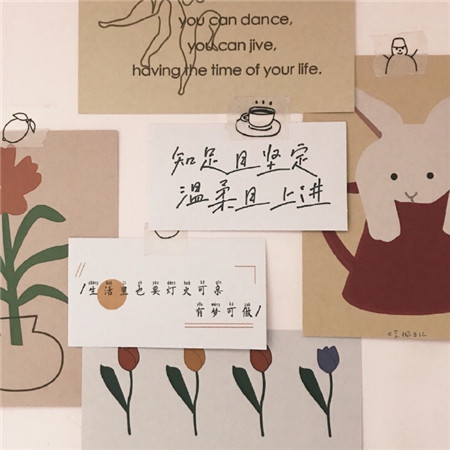 you can dance,
you can jive,
having the time of your life.
知足且坚定
温柔且上进
/生活里也要灯火可亲
有梦可做/